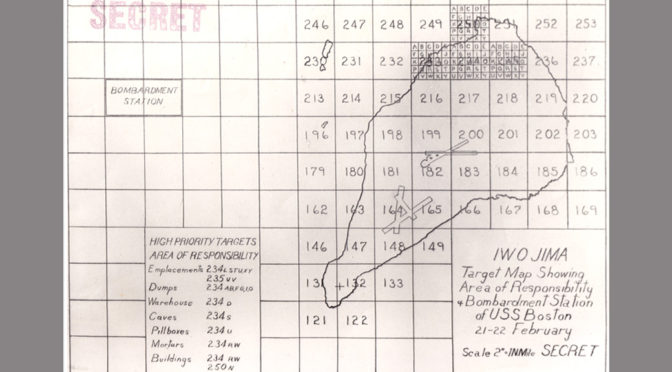 SECRET
246 247 248 249 250 251 252 253
230 231 232 233 234 235 236 237
BOMBARDMENT
STATION
213 214 215 216 217 218 219 220
196 197 198 199 200 201 202 203
179 180 181 182 183 184 185 186
162 163 164 165 166 167 168 169
146 147 148 149
131 132 133
121 122
HIGH PRIORITY TARGETS
AREA OF RESPONSIBILITY
Emplacements 234 L S T U X Y
235 U V
Dumps
Warehouse 234 D
Caves 234 S
Pillboxes 234 U
Mortars 234 R W
Buildings 234 R W
250 N
IWO JIMA
Target Map Showing
Area of Responsibility
& Bombardment Station
of USS Boston
21-22 February
Scale 2"=1NMile SECRET